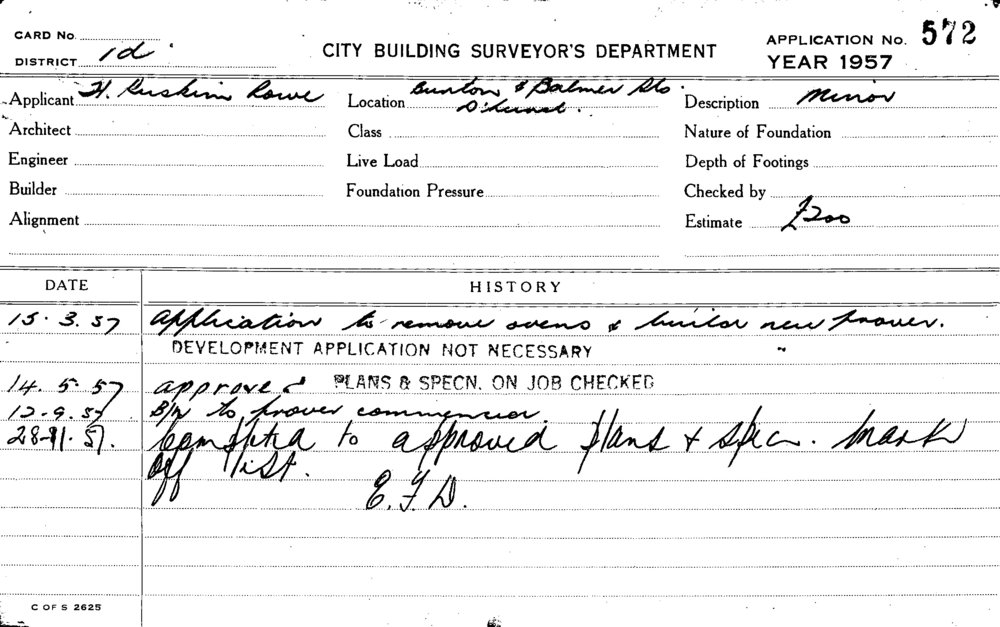 CARD No.
DISTRICT 1d
CITY BUILDING SURVEYOR'S DEPARTMENT
APPLICATION No. 572
YEAR 1957
Applicant H. Ruskin Rowe
Location Burton & Balmer Sts
D'hurst.
Description Minor
Architect
Class
Nature of Foundation
Engineer
Live Load
Depth of Footings
Builder
Foundation Pressure
Checked by
Alignment
Estimate £200
DATE HISTORY
15.3.57 Application to remove ovens & build new prover.
DEVELOPMENT APPLICATION NOT NECESSARY
14.5.57 approved PLANS & SPECN. ON JOB CHECKED
12.9.57 to prover commenced
28.11.57. Completed to approved plans & spec. Mark
off list. E.F.D.
C OF S 2625